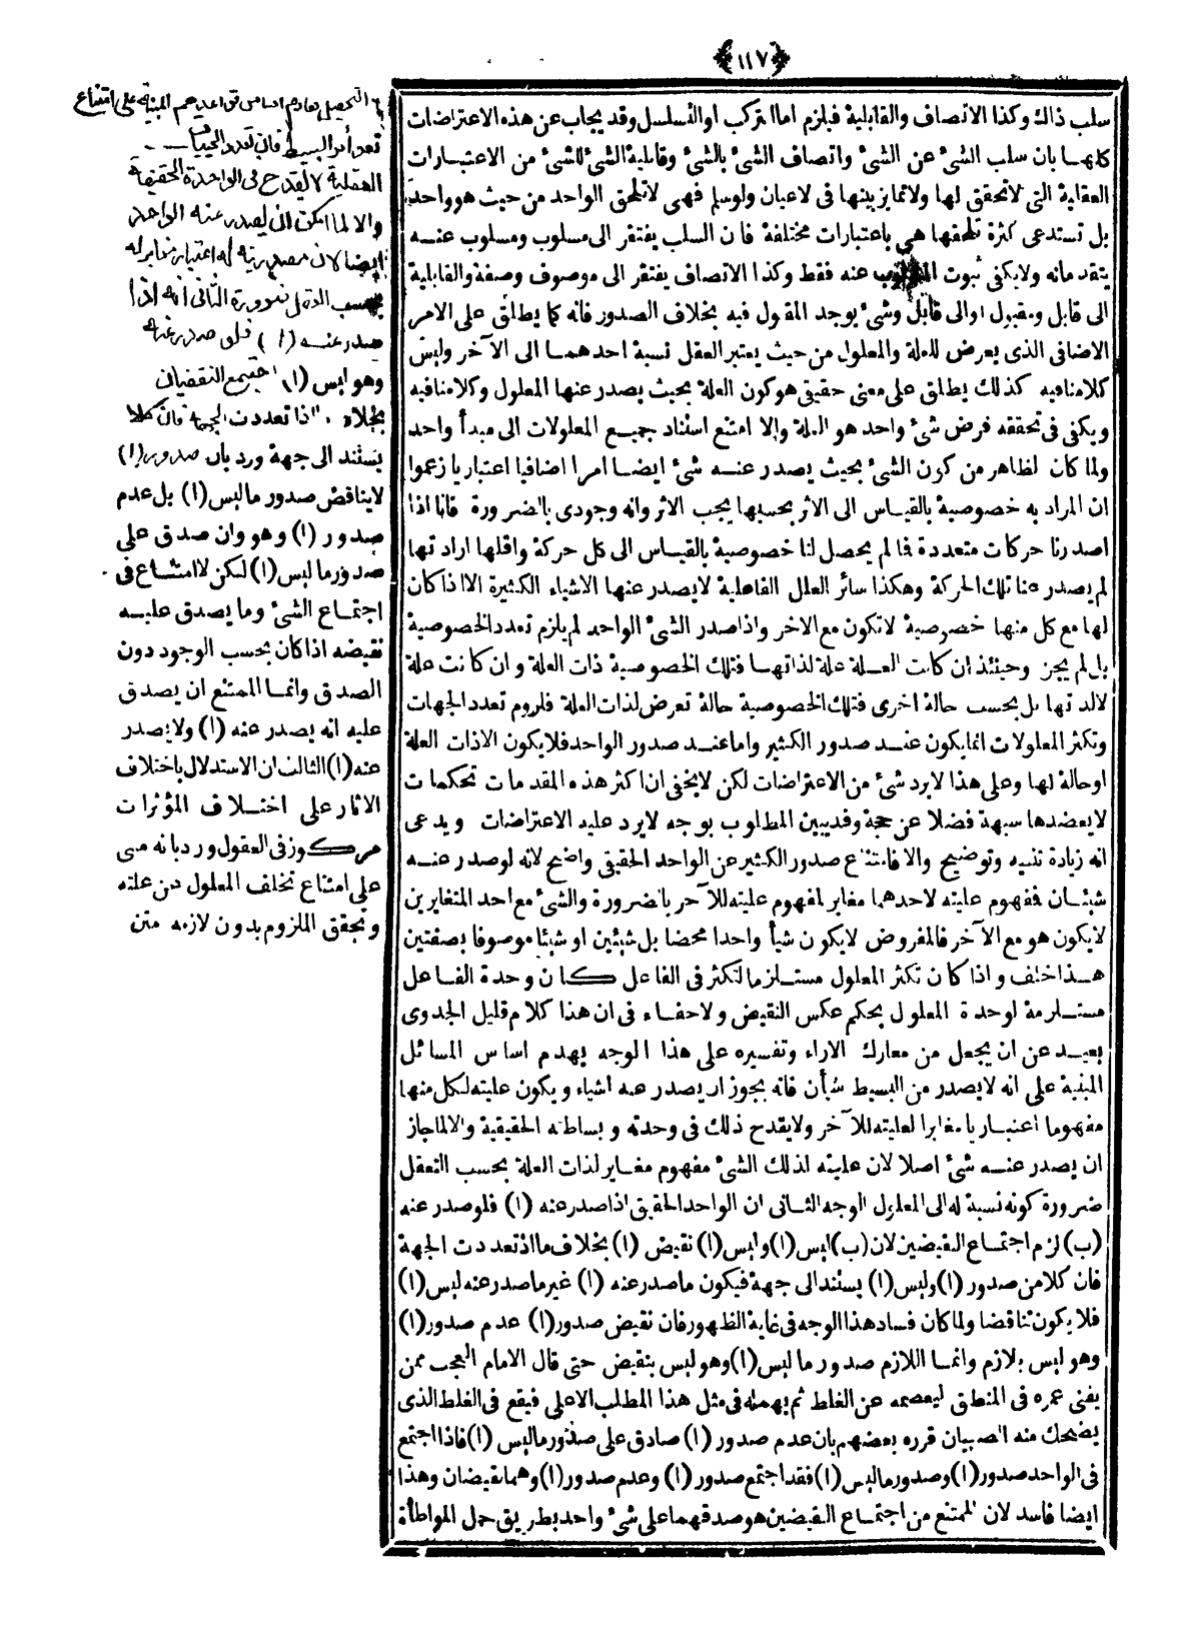 ﴿١١٧﴾
سلب ذالك وكذا الاتصاف والقابلية فيلزم اما التركب او التسلسل وقد يجاب عن هذه الاعتراضات
كلها بان سلب الشئ عن الشئ واتصاف الشئ بالشئ وقابلية الشئ للشئ من الاعتبارات
العقلية التى لا تحقق لها ولا تمايز بينها فى لاعيان ولو سلم فهى لا تلحق الواحد من حيث هو واحد
بل تستدعى كثرة تلحقها هى باعتبارات مختلفة فان السلب يفتقر الى مسلوب ومسلوب عنه
يتقدمانه ولا يكفى ثبوت المسلوب عنه فقط وكذا الاتصاف يفتقر الى موصوف وصفة والقابلية
الى قابل ومقبول او الى قابل وشئ يوجد المقول فيه بخلاف الصدور فانه كما يطلق على الامر
الاضافى الذى يعرض للعلة والمعلول من حيث يعتبر العقل نسبة احدهما الى الآخر وليس
كلامنا فيه كذلك يطلق على معنى حقيقى هو كون العلة بحيث يصدر عنها المعلول وكلامنا فيه
ويكفى فى تحققه فرض شئ واحد هو العلة والا امتنع استناد جميع المعلولات الى مبدأ واحد
ولما كان الظاهر من كون الشئ بحيث يصدر عنه شئ ايضا امرا اضافيا اعتباريا زعموا
ان المراد به خصوصية بالقياس الى الاثر بحسبها يجب الاثر وانه وجودى بالضرورة فانا اذا
اصدرنا حركات متعددة فما لم يحصل لنا خصوصية بالقياس الى كل حركة واقلها ارادتها
لم يصدر عنا تلك الحركة وهكذا سائر العلل الفاعلية لا يصدر عنها الاشياء الكثيرة الا اذا كان
لها مع كل منها خصوصية لا تكون مع الاخر واذا صدر الشئ الواحد لم يلزم تعدد الخصوصية
بل لم يجز وحينئذ ان كانت العلة علة لذاتها فتلك الخصوصية ذات العلة وان كانت علة
لا لذاتها بل بحسب حالة اخرى فتلك الخصوصية حالة تعرض لذات العلة فلزوم تعدد الجهات
وتكثر المعلولات انما يكون عند صدور الكثير واما عند صدور الواحد فلا يكون الا ذات العلة
او حالة لها وعلى هذا لا يرد شئ من الاعتراضات لكن لا يخفى ان اكثر هذه المقدمات تحكمات
لا يعضدها شبهة فضلا عن حجة وقد يبين المطلوب بوجه لا يرد عليه الاعتراضات ويدعى
انه زيادة تنبيه وتوضيح والا فامتناع صدور الكثير عن الواحد الحقيقى واضح لانه لو صدر عنه
شيئان فمفهوم عليته لاحدهما مغاير لمفهوم عليته للآخر بالضرورة والشئ مع احد المتغايرين
لا يكون هو مع الآخر فالمفروض لا يكون شيأ واحدا محضا بل شيئين او شيئا موصوفا بصفتين
هذا خلف واذا كان تكثر المعلول مستلزما لتكثر فى الفاعل كان وحدة الفاعل
مستلزمة لوحدة المعلول بحكم عكس النقيض ولا خفاء فى ان هذا كلام قليل الجدوى
بعيد عن ان يجعل من معارك الاراء وتفسيره على هذا الوجه يهدم اساس المسائل
المبنية على انه لا يصدر من البسيط شيأن فانه يجوز ان يصدر عنه اشياء ويكون عليته لكل منها
مفهوما اعتباريا مغايرا لعليته للآخر ولا يقدح ذلك فى وحدته وبساطته الحقيقية والا لما جاز
ان يصدر عنه شئ اصلا لان عليته لذلك الشئ مفهوم مغاير لذات العلة بحسب التعقل
ضرورة كونه نسبة له الى المعلول الوجه الثانى ان الواحد الحقيقى اذا صدر عنه (ا) فلو صدر عنه
(ب) لزم اجتماع النقيضين لان (ب) ليس (ا) وليس (ا) نقيض (ا) بخلاف ما اذ تعددت الجهة
فان كلا من صدور (ا) وليس (ا) يستند الى جهة فيكون ما صدر عنه (ا) غير ما صدر عنه ليس (ا)
فلا يكون تناقضا ولما كان فساد هذا الوجه فى غاية الظهور فان نقيض صدور (ا) عدم صدور (ا)
وهو ليس بلازم وانما اللازم صدور ما ليس (ا) وهو ليس بنقيض حتى قال الامام العجب ممن
يفنى عمره فى المنطق ليعصمه عن الغلط ثم يهمله فى مثل هذا المطلب الاعلى فيقع فى الغلط الذى
يضحك منه الصبيان قرره بعضهم بان عدم صدور (ا) صادق على صدور ما ليس (ا) فاذا اجتمع
فى الواحد صدور (ا) وصدور ما ليس (ا) فقد اجتمع صدور (ا) وعدم صدور (ا) وهما نقيضان وهذا
ايضا فاسد لان الممتنع من اجتماع النقيضين هو صدقهما على شئ واحد بطريق حمل المواطأة
التحصيل يهادم اساس قواعدهم المبنية على امتناع
تعدد أثر البسيط فان تعدد الحيثيات
العقلية لا يقدح فى الواحدة الحقيقة
والا لما امكن ان يصدر عنه الواحد
ايضا لان مصدريته له اعتبار مغاير له
بحسب العقل ضرورة الثانى انه اذا
صدر عنه (ا) فلو صدر عنه
وهو ليس (ا) اجتمع النقيضان
بخلاف ما اذا تعددت الجهة فان كلا
يستند الى جهة ورد بان صدور (ا)
لا يناقض صدور ما ليس (ا) بل عدم
صدور (ا) وهو وان صدق على
صدور ما ليس (ا) لكن لا امتناع فى
اجتماع الشئ وما يصدق عليه
نقيضه اذا كان بحسب الوجود دون
الصدق وانما الممتنع ان يصدق
عليه انه يصدر عنه (ا) ولا يصدر
عنه (ا) الثالث ان الاستدلال باختلاف
الاثار على اختلاف المؤثرات
مركوز فى العقول ورد بانه مبنى
على امتناع تخلف المعلول عن علته
وتحقق الملزوم بدون لازمه متن